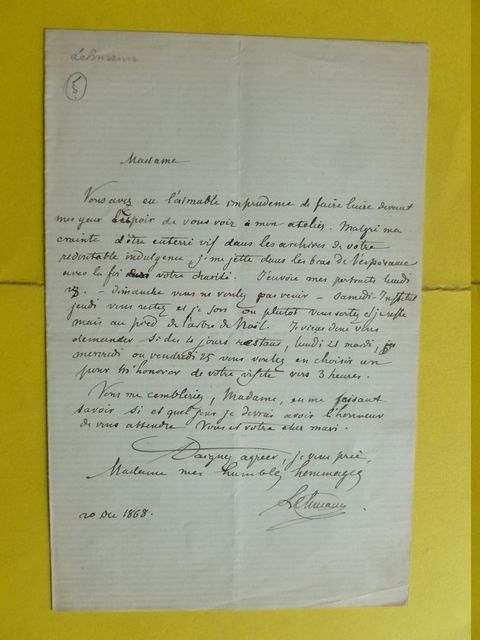 Lehmann
5
Madame
Vous avez eu l'aimable imprudence de faire luire devant
mes yeux l'espoir de vous voir à mon atelier. Malgré ma
crainte d'être enterré vif dans les archives de votre
redoutable indulgence, je me jette dans les bras de l'espérance
avec la foi dans votre charité. J'envoie mes portraits lundi
28. - dimanche vous ne voulez pas venir - Samedi-Institut
jeudi vous restez et je sors ou plutôt vous sortez et je reste
mais au pied de l'arbre de Noël. Je viens donc vous
demander si des 4 jours restans, lundi 21 mardi,
mercredi ou vendredi 25 vous voulez en choisir un
pour m'honorer de votre visite vers 3 heures.
Vous me combleriez, Madame, en me faisant
savoir si et quel jour je devrais avoir l'honneur
de vous attendre Vous et votre cher mari.
Daignez agréer, je vous prie,
Madame mes humbles hommages
Lehmann
20 Dec 1868.